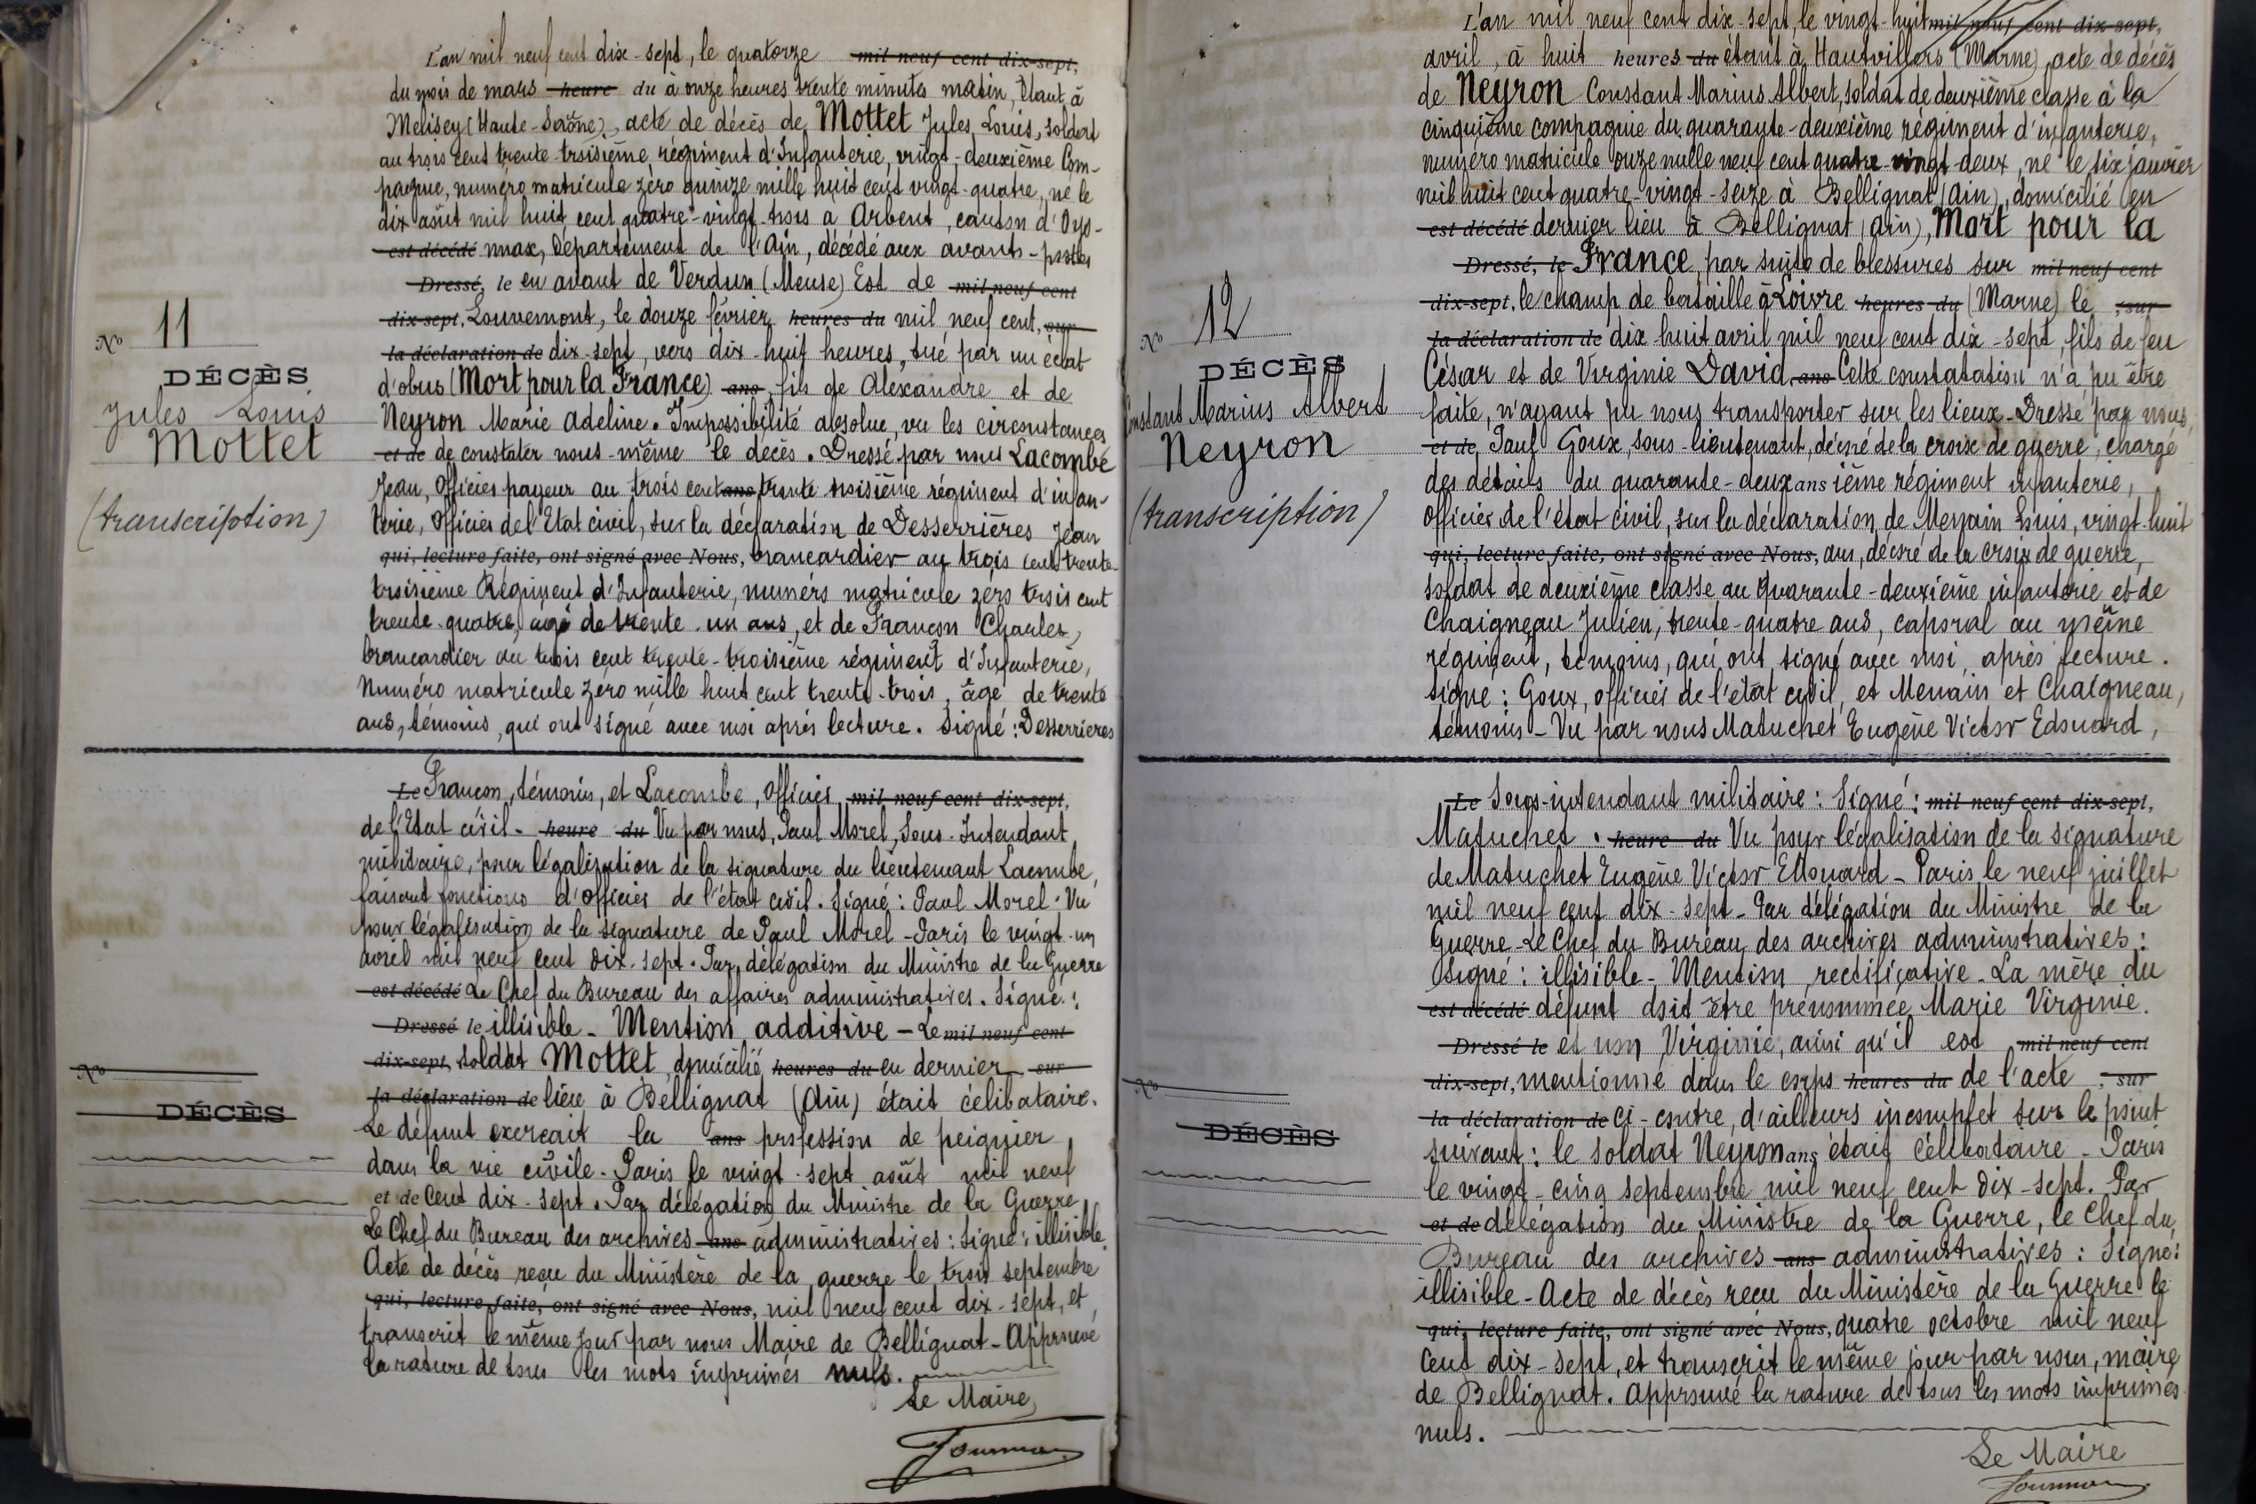 L'an mil neuf cent dix-sept, le quatorze mil neuf cent dix-sept,
du mois de mars heure du à onze heures trente minutes matin, Étant à
Melisey (Haute-Saône), acte de décès de Mottet Jules Louis, soldat
au trois cent trente-troisième régiment d'Infanterie, vingt-deuxième Com-
pagnie, numéro matricule zéro quinze mille huit cent vingt-quatre, né le
dix août mil huit cent quatre-vingt-trois à Arbent, canton d'Oyo-
est décédé nnax, Département de l'Ain, décédé aux avants-postes
Dressé, le en avant de Verdun (Meuse) Est de mil neuf cent
dix-sept, Louvemont, le douze février heures du mil neuf cent, sur
la déclaration de dix-sept, vers dix-huit heures, tué par un éclat
d'obus (Mort pour la France) ans, fils de Alexandre et de
Neyron Marie Adeline. Impossibilité absolue, vu les circonstances
et de de constater nous-même le décès. Dressé par nous Lacombe
Jean, Officier payeur au trois cent ans trente-troisième régiment d'infan-
terie, Officier de l'Etat civil, sur la déclaration de Desserrières Jean
qui, lecture faite, ont signé avec Nous, brancardier au trois cent trente-
troisième Régiment d'Infanterie, numéro matricule zéro trois cent
trente-quatre, âgé de trente-un ans, et de Françon Charles,
brancardier au trois cent trente-troisième régiment d'Infanterie,
Numéro matricule zéro mille huit cent trente-trois, âgé de trente
ans, témoins, qui ont signé avec moi après lecture. Signé : Desserrières
No 11
DÉCÈS
Jules Louis
Mottet
(transcription)
Le Françon, témoins, et Lacombe, Officier mil neuf cent dix-sept,
de l'Etat civil - heure du Vu par nous, Paul Morel, Sous-Intendant
militaire, pour légalisation de la signature du lieutenant Lacombe,
faisant fonctions d'Officier de l'état civil. Signé : Paul Morel. Vu
pour légalisation de la signature de Paul Morel - Paris le vingt-un
avril mil neuf cent dix-sept. Par délégation du Ministre de la Guerre
est décédé Le Chef du Bureau des affaires administratives. Signé :
Dressé le illisible - Mention additive - Le mil neuf cent
dix-sept, soldat Mottet, domicilié heures du en dernier sur
la déclaration de lieu à Bellignat (Ain) était célibataire.
Le défunt exerçait la ans profession de peignier
dans la vie civile - Paris le vingt-sept août mil neuf
et de cent dix-sept. Par délégation du Ministre de la Guerre
Le Chef du Bureau des archives ans administratives : Signé : illisible.
Acte de décès reçu du Ministère de la guerre le trois septembre
qui, lecture faite, ont signé avec Nous, mil neuf cent dix-sept, et
transcrit le même jour par nous Maire de Bellignat - Approuvé
la rature de tous les mots imprimés nuls.
Le Maire
No
DÉCÈS
L'an mil neuf cent dix-sept, le vingt-huit mil neuf cent dix-sept,
avril, à huit heures du étant à Hautvillers (Marne) acte de décès
de Neyron Constant Marius Albert, soldat de deuxième classe à la
cinquième compagnie du quarante-deuxième régiment d'infanterie,
numéro matricule onze mille neuf cent quatre-vingt-deux, né le six janvier
mil huit cent quatre-vingt-seize à Bellignat (Ain), domicilié en
est décédé dernier lieu à Bellignat (Ain), Mort pour la
Dressé, le France, par suite de blessures sur mil neuf cent
dix-sept, le champ de bataille à Loivre heures du (Marne) le ; sur
la déclaration de dix-huit avril mil neuf cent dix-sept, fils de feu
César et de Virginie David ans Cette constatation n'a pu être
faite, n'ayant pu nous transporter sur les lieux - Dressé par nous,
et de Paul Goux, sous-lieutenant, décoré de la croix de guerre, chargé
des détails du quarante-deux ans ième régiment infanterie,
Officier de l'état civil, sur la déclaration de Menain Louis, vingt-huit
qui, lecture faite, ont signé avec Nous, ans, décoré de la croix de guerre,
soldat de deuxième classe au Quarante-deuxième infanterie et de
Chaigneau Julien, trente-quatre ans, caporal au même
régiment, témoins, qui ont signé avec moi après lecture.
Signé : Goux, officier de l'état civil, et Menain et Chaigneau,
témoins - Vu par nous Matuchet Eugène Victor Edouard,
No 12
DÉCÈS
Constant Marius Albert
Neyron
(transcription)
Le Sous-intendant militaire : Signé : mil neuf cent dix-sept,
Matuchet. heure du Vu pour légalisation de la signature
de Matuchet Eugène Victor Edouard - Paris le neuf juillet
mil neuf cent dix-sept - Par délégation du Ministre de la
Guerre - Le Chef du Bureau des archives administratives :
Signé : illisible - Mention rectificative - La mère du
est décédé défunt doit être prénommée Marie Virginie.
Dressé le et non Virginie, ainsi qu'il est mil neuf cent
dix-sept, mentionné dans le corps heures du de l'acte ; sur
la déclaration de ci-contre, d'ailleurs incomplet sur le point
suivant : le soldat Neyron ans était célibataire - Paris
le vingt-cinq septembre mil neuf cent dix-sept. Par
et de délégation du Ministre de la Guerre, le Chef du
Bureau des archives ans administratives : Signé :
illisible - Acte de décès reçu du Ministère de la Guerre le
qui, lecture faite, ont signé avec Nous, quatre octobre mil neuf
cent dix-sept, et transcrit le même jour par nous, maire
de Bellignat. Approuvé la rature de tous les mots imprimés
nuls.
Le Maire
No
DÉCÈS